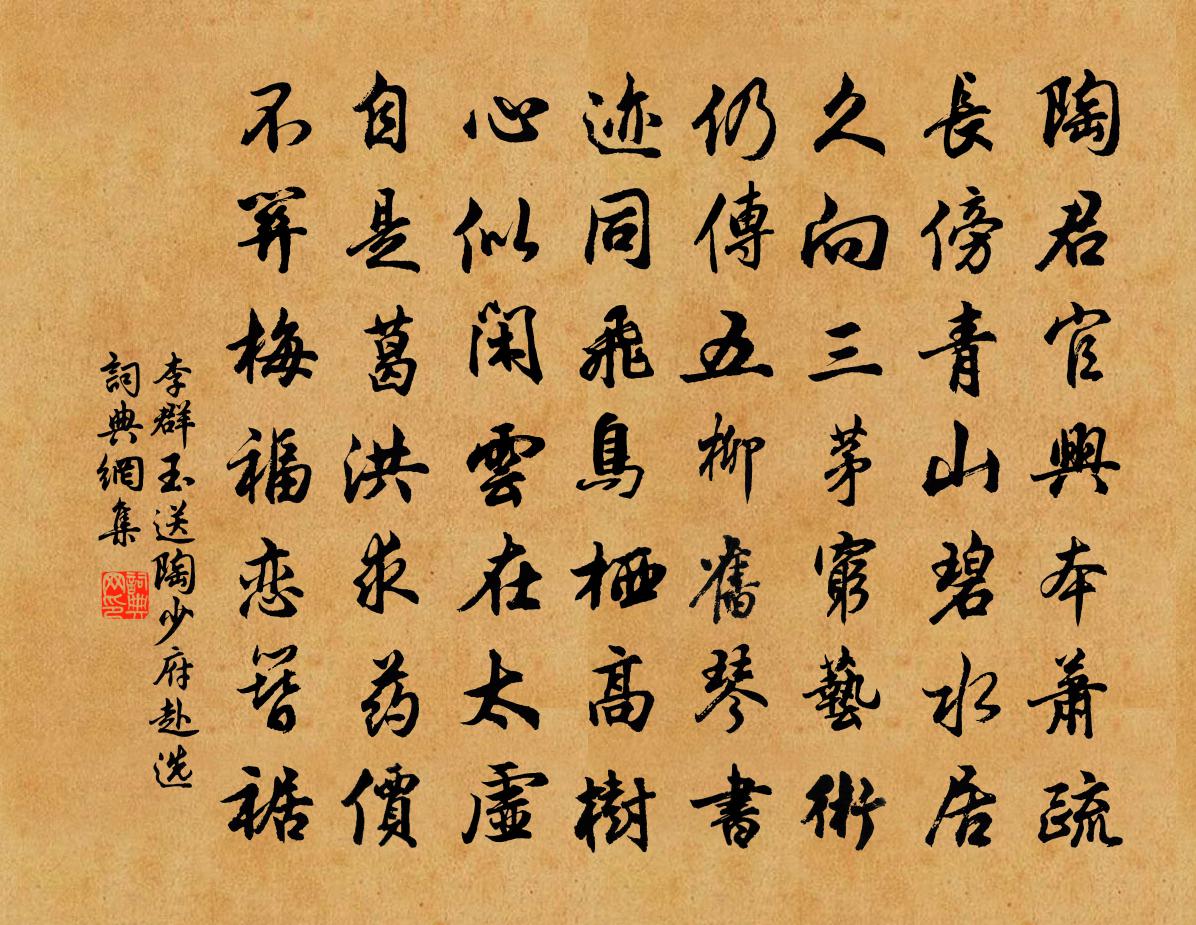 陶君官興本蕭疏
長傍青山碧水居
久向三茅窮藝術
仍傳五柳舊琴書
迹同飛鳥栖高樹
心似閑雲在太虛
自是葛洪求药價
不筭梅福恋簪裾
李群玉送陶少府赴选
詞典網集
詞典网印